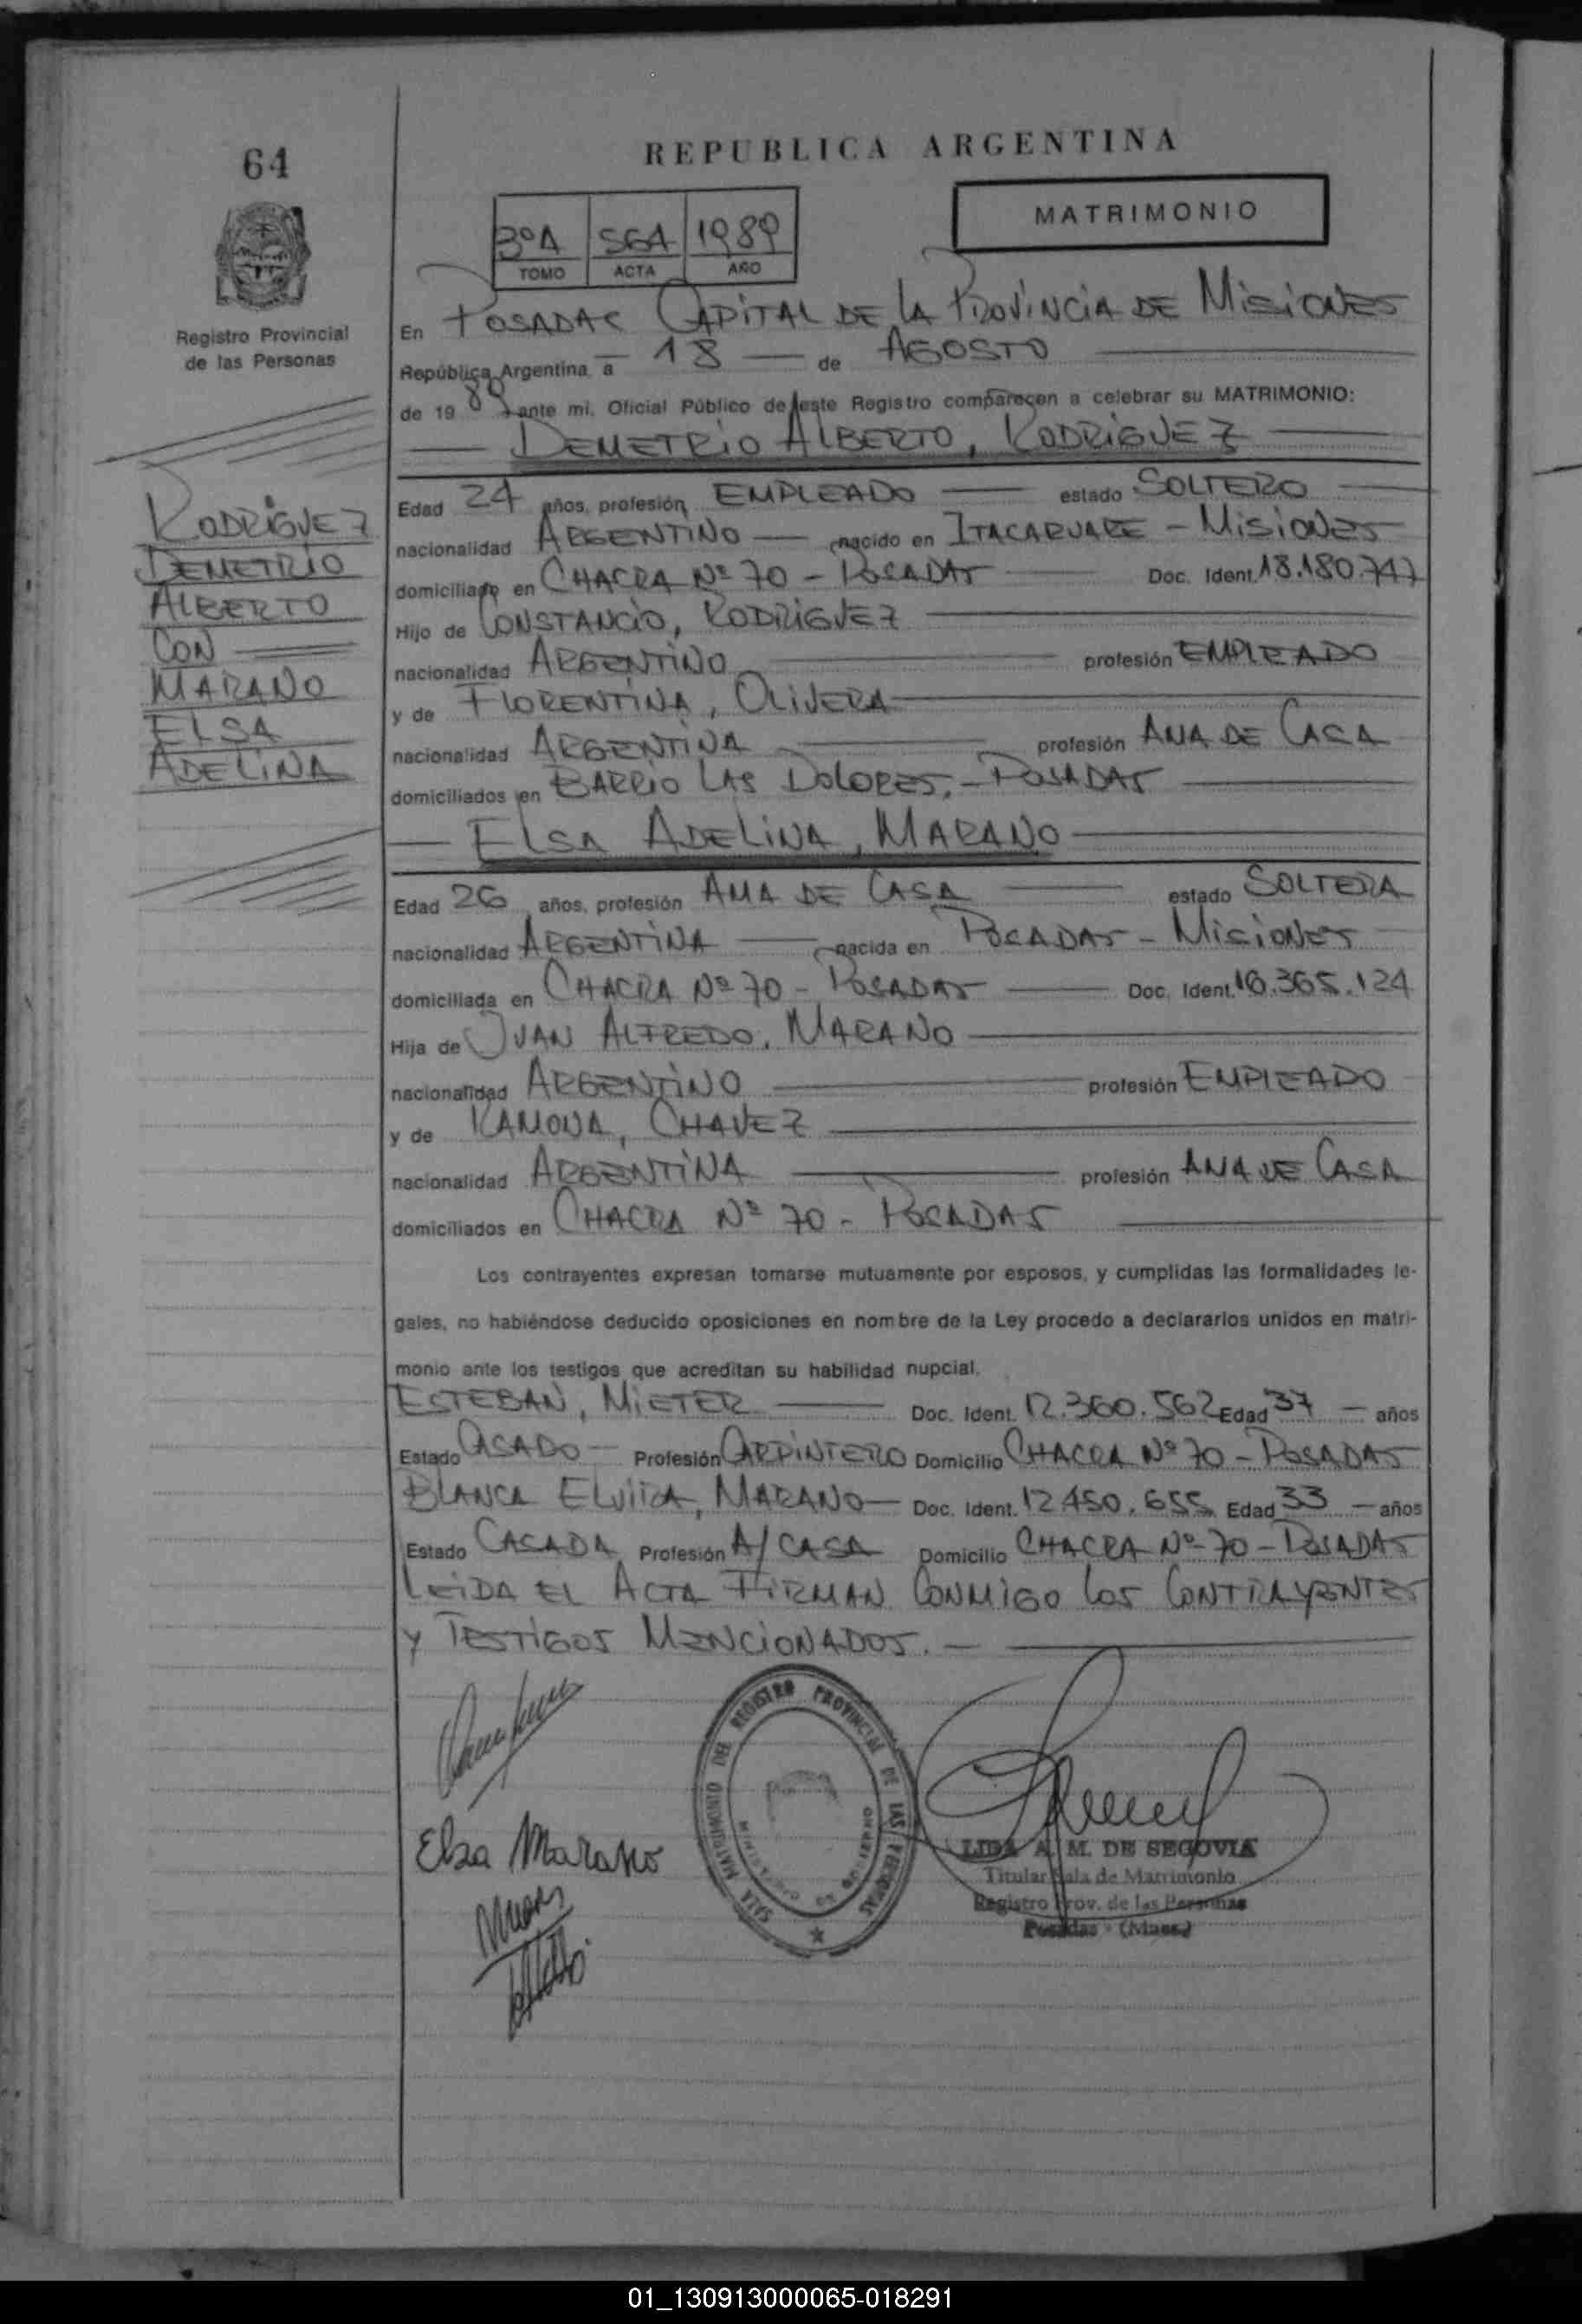 64
REPUBLICA ARGENTINA
MATRIMONIO
3ºA 564 1989
TOMO ACTA AÑO
Registro Provincial
de las Personas
En POSADAS CAPITAL DE LA PROVINCIA DE MISIONES
República Argentina a 18 de AGOSTO
de 1989 ante mi, Oficial Público de este Registro comparecen a celebrar su MATRIMONIO:
DEMETRIO ALBERTO, RODRIGUEZ
RODRIGUEZ
DEMETRIO
ALBERTO
CON
MARANO
ELSA
ADELINA
Edad 24 años, profesión EMPLEADO estado SOLTERO
nacionalidad ARGENTINO nacido en ITACARUARE - MISIONES
domiciliado en CHACRA Nº 70 - POSADAS Doc. Ident. 18.180.747
Hijo de CONSTANCIO, RODRIGUEZ
nacionalidad ARGENTINO profesión EMPLEADO
y de FLORENTINA, OLIVERA
nacionalidad ARGENTINA profesión AMA DE CASA
domiciliados en BARRIO LAS DOLORES, - POSADAS
ELSA ADELINA, MARANO
Edad 26 años, profesión AMA DE CASA estado SOLTERA
nacionalidad ARGENTINA nacida en POSADAS - MISIONES
domiciliada en CHACRA Nº 70 - POSADAS Doc. Ident. 16.365.124
Hija de JUAN ALFREDO, MARANO
nacionalidad ARGENTINO profesión EMPLEADO
y de RAMONA, CHAVEZ
nacionalidad ARGENTINA profesión AMA DE CASA
domiciliados en CHACRA Nº 70 - POSADAS
Los contrayentes expresan tomarse mutuamente por esposos, y cumplidas las formalidades le-
gales, no habiéndose deducido oposiciones en nombre de la Ley procedo a declararlos unidos en matri-
monio ante los testigos que acreditan su habilidad nupcial.
ESTEBAN, MIETER Doc. Ident. 12.360.562 Edad 37 años
Estado CASADO Profesión CARPINTERO Domicilio CHACRA Nº 70 - POSADAS
BLANCA ELVIRA, MARANO Doc. Ident. 12.450.655 Edad 33 años
Estado CASADA Profesión A/ CASA Domicilio CHACRA Nº 70 - POSADAS
LEIDA EL ACTA FIRMAN CONMIGO LOS CONTRAYENTES
Y TESTIGOS MENCIONADOS.
SALA MATRIMONIO DEL REGISTRO PROVINCIAL DE LAS PERSONAS
MINISTERIO DE GOBIERNO
Elsa Marano
LIDA A. M. DE SEGOVIA
Titular Sala de Matrimonio
Registro Prov. de las Personas
Posadas - (Mnes.)
01_130913000065-018291